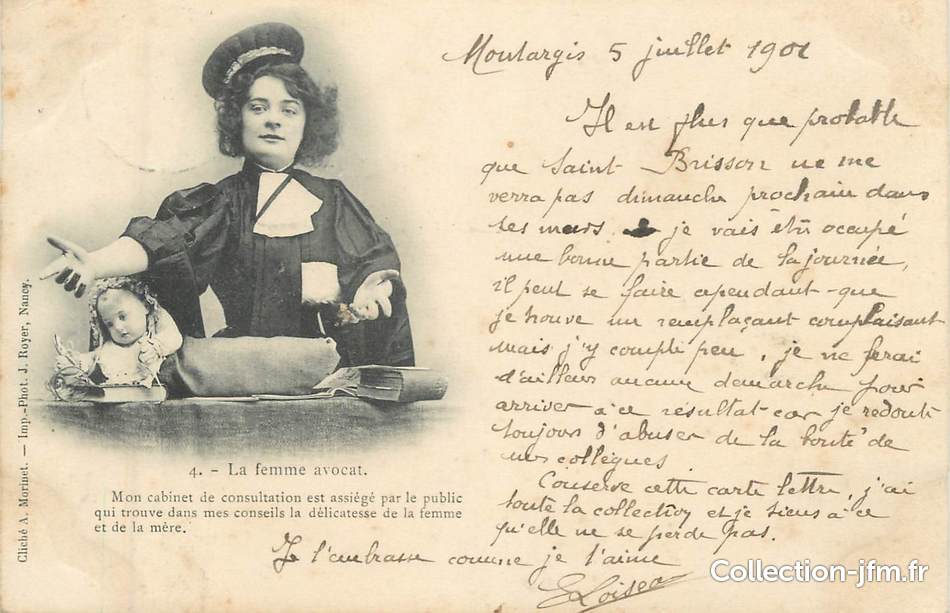 Montargis 5 juillet 1901
Il est plus que probable
que Saint-Brisson ne me
verra pas dimanche prochain dans
ses murs. je vais être occupé
une bonne partie de la journée,
il peut se faire cependant que
je trouve un remplaçant complaisant
mais j'y compte peu, je ne ferai
d'ailleurs aucune demarche pour
arriver à ce résultat car je redoute
toujours d'abuser de la bonté de
mes collègues.
Conserve cette carte lettre, j'ai
toute la collection et je tiens à ce
qu'elle ne se perde pas.
Je t'embrasse comme je t'aime
4. - La femme avocat.
Mon cabinet de consultation est assiégé par le public
qui trouve dans mes conseils la délicatesse de la femme
et de la mère.
Cliché A. Morinet. — Imp.-Phot. J. Royer, Nancy.
Collection-jfm.fr